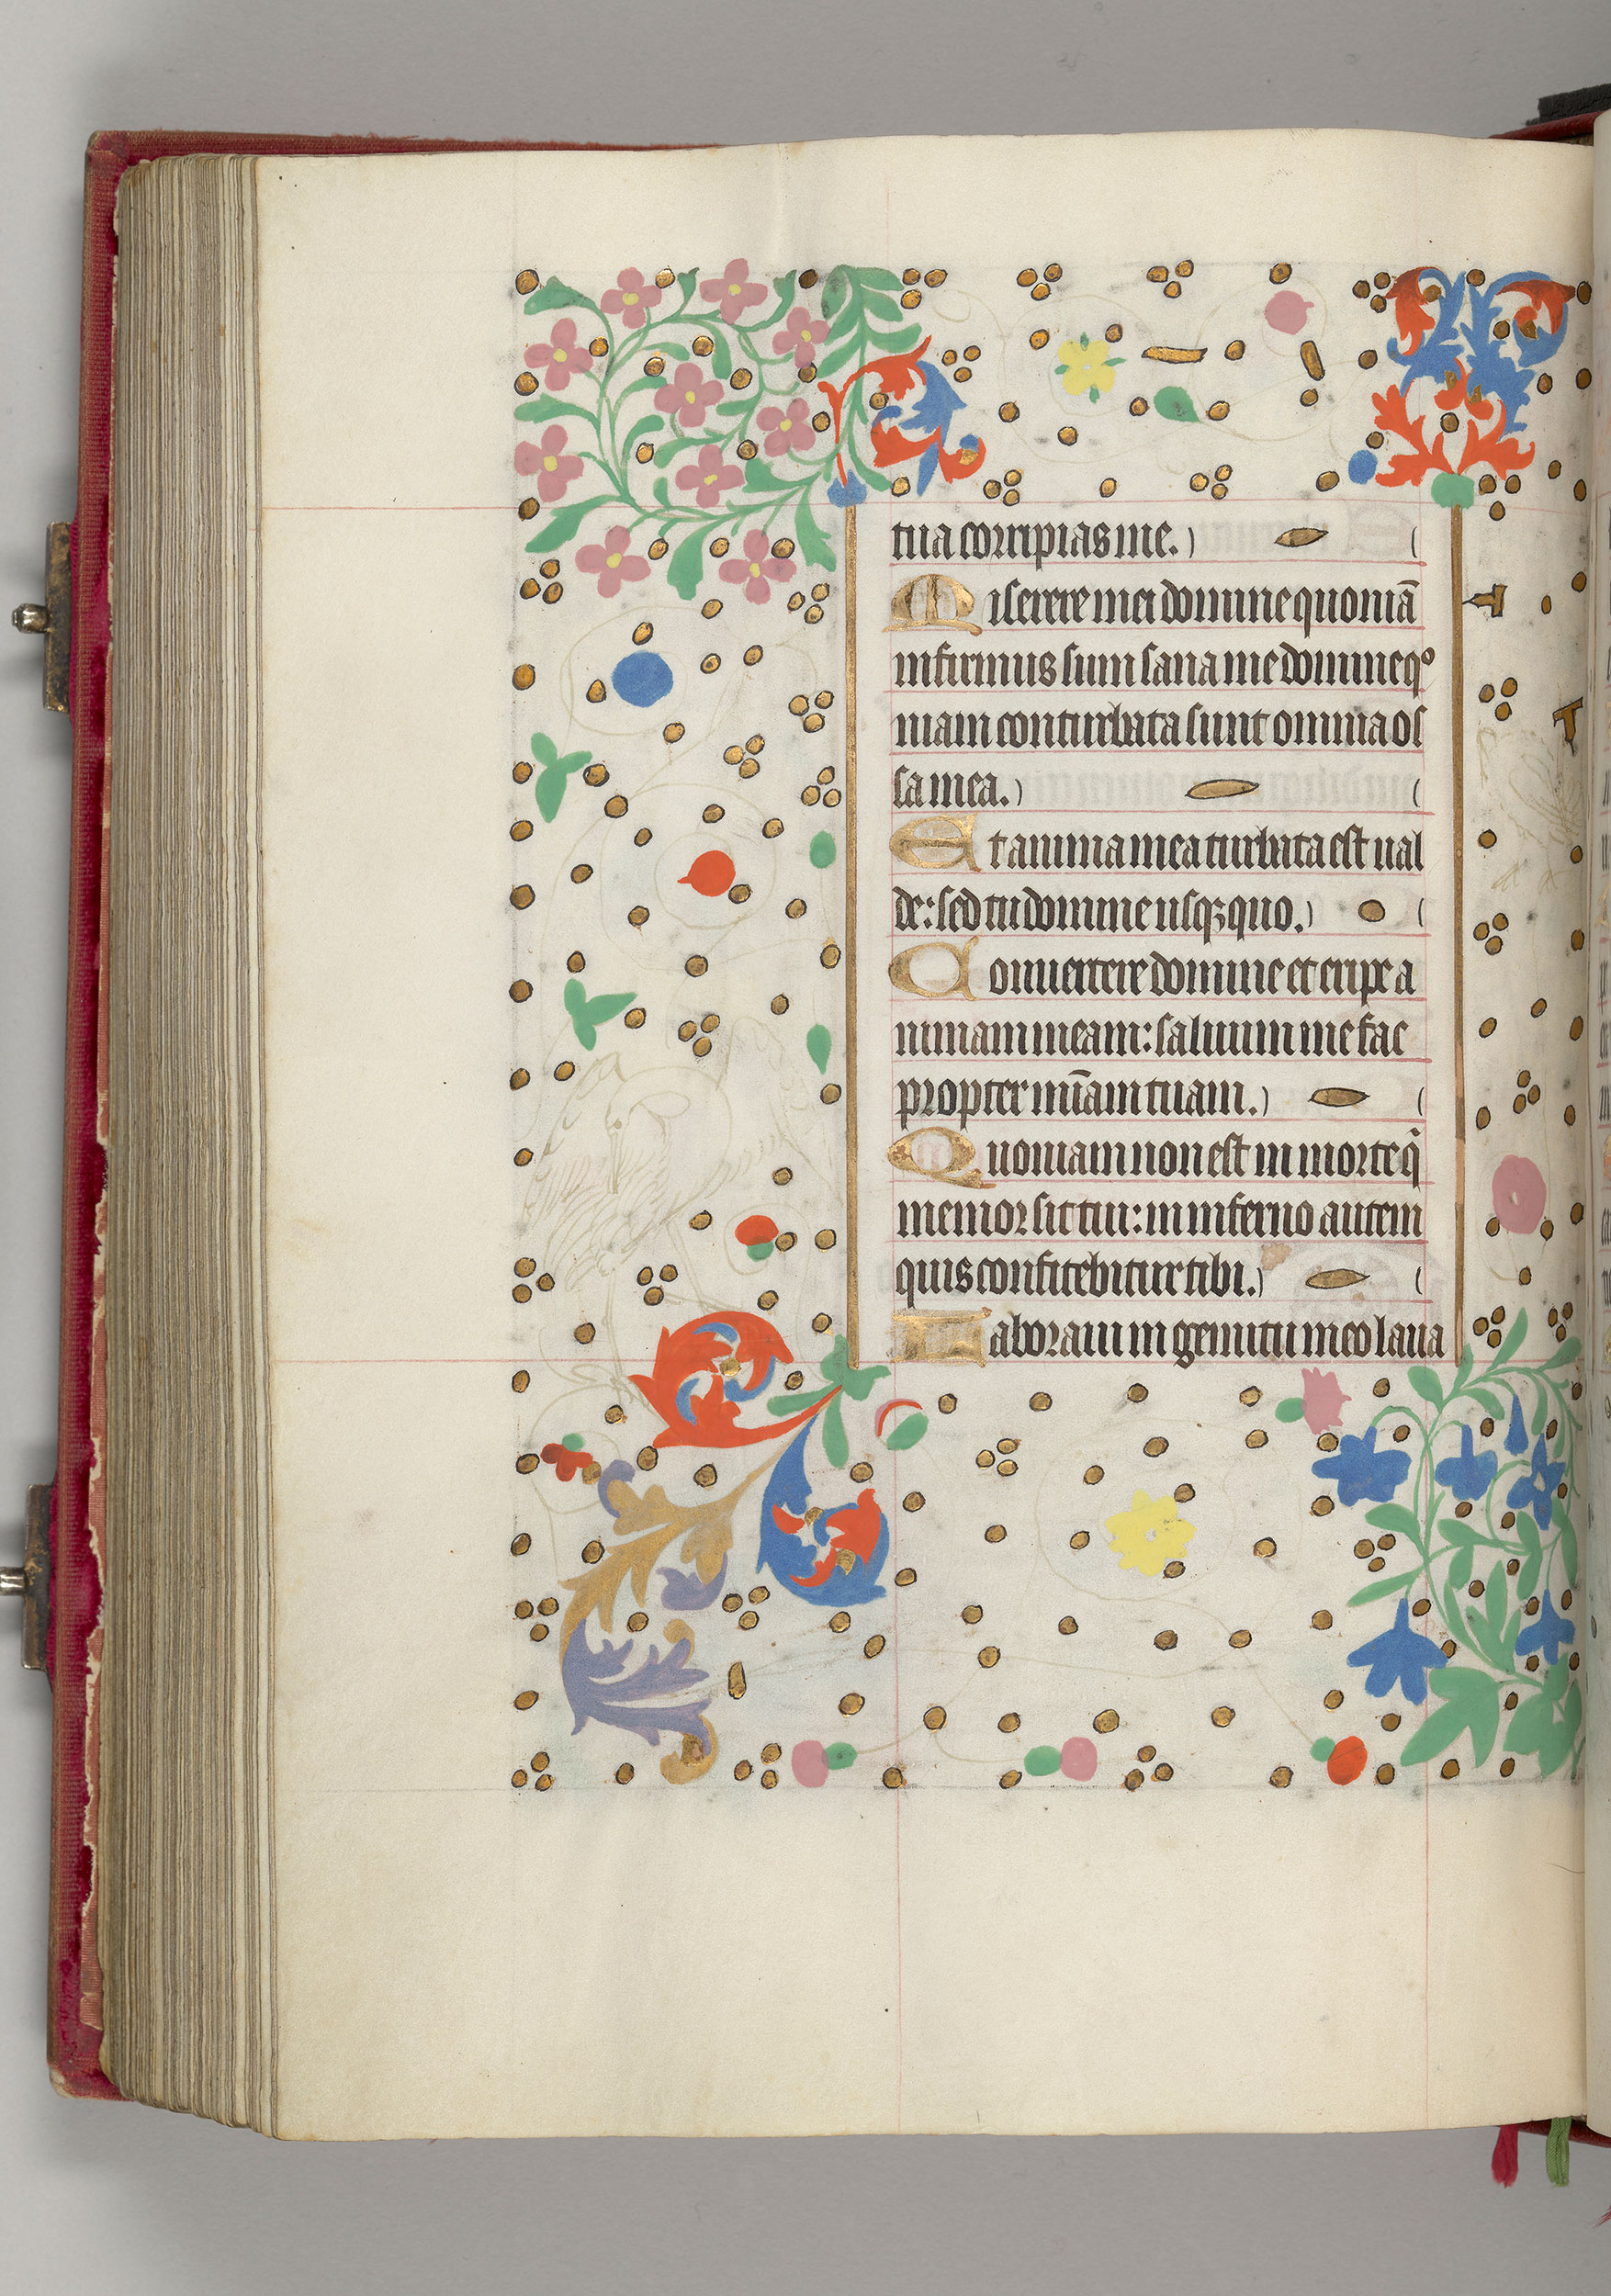 tua corripias me.
Miserere mei domine quoniā
infirmus sum sana me domine qº
niam conturbata sunt omnia os
sa mea.
Et anima mea turbata est ual
de: sed tu domine usqꝫ quo.
Conuertere domine et eripe a
nimam meam: saluum me fac
propter mīam tuam.
Quoniam non est in morte q̄
memor sit tui: in inferno autem
quis confitebitur tibi.
Laboraui in gemitu meo laua